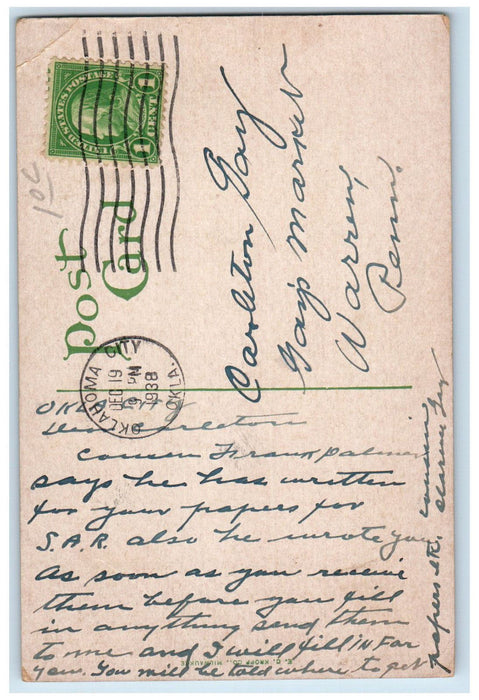 UNITED STATES POSTAGE
10¢
Post
Card
OKLAHOMA CITY
DEC 19
9 PM
1938
OKLA.
Carleton Gay
Gay's Market
Warren,
Penn.
OKLA CITY
Dear Carleton
Cousin Frank Palmer
says he has written
for your papers for
S.A.R. also he wrote you
As soon as you receive
them before you fill
in anything send them
to me and I will fill in for
you. You will be told where to get
papers &c. Cousin
E. C. KROPP CO., MILWAUKEE